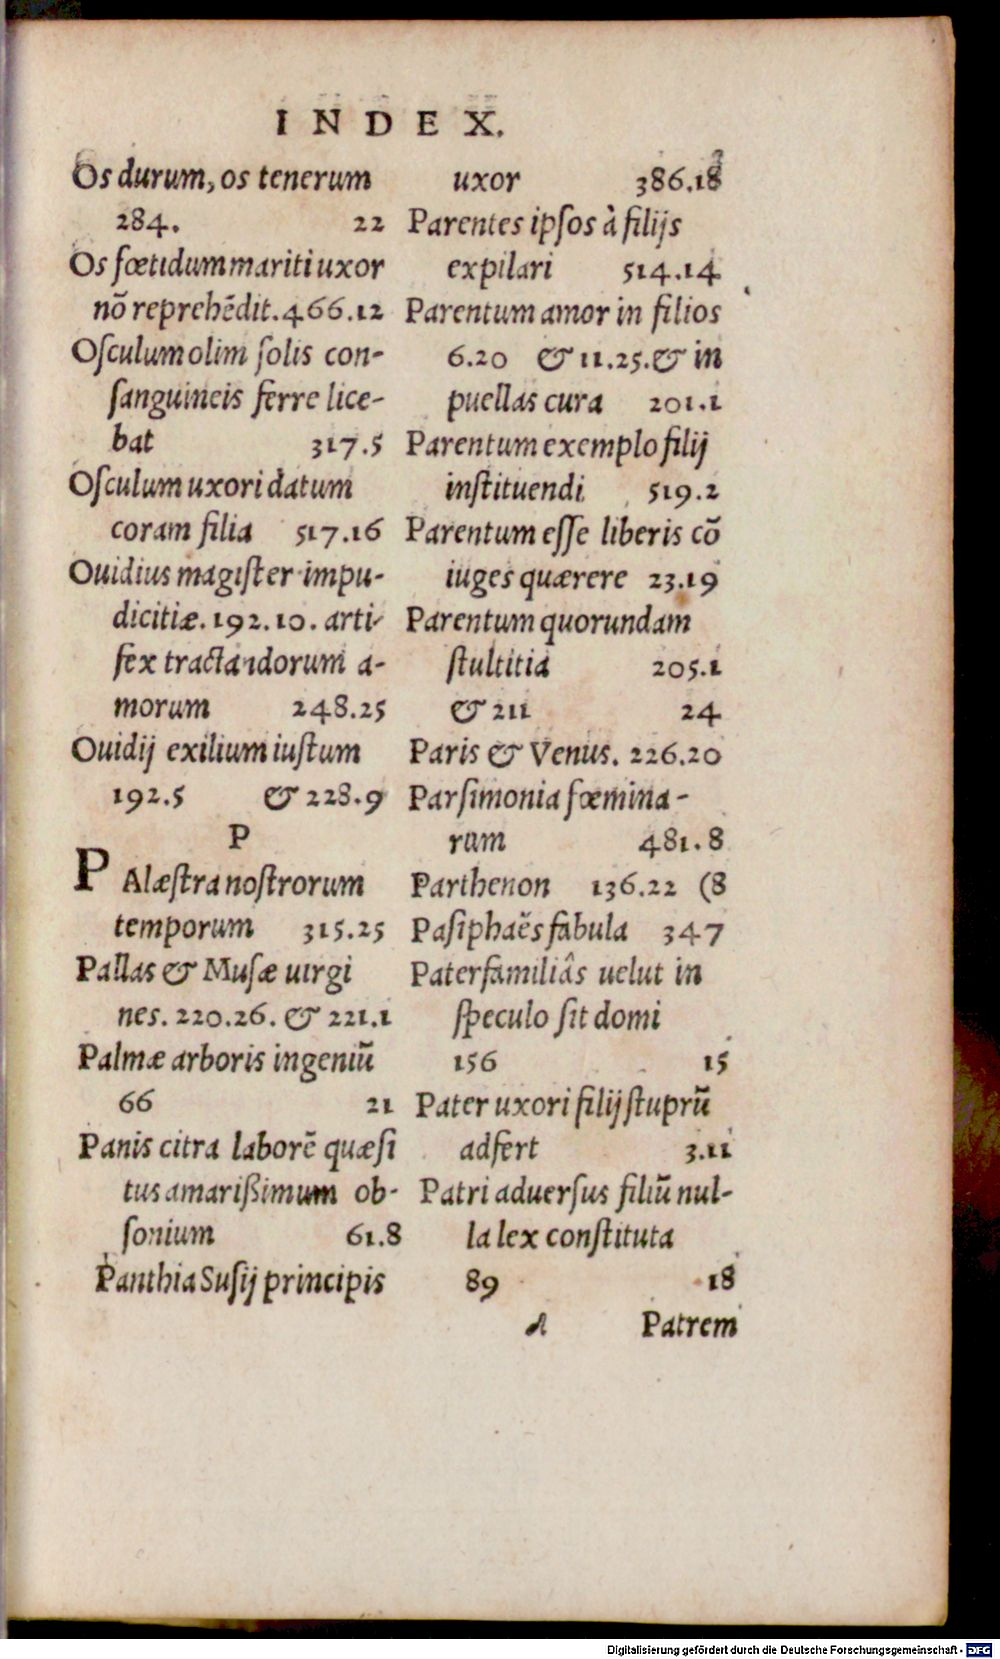 INDEX.
Os durum, os tenerum
284. 22
Os fœtidum mariti uxor
nõ reprehẽdit. 466.12
Osculum olim solis con-
sanguineis ferre lice-
bat 317.5
Osculum uxori datum
coram filia 517.16
Ouidius magister impu-
dicitiæ. 192.10. arti-
fex tractandorum a-
morum 248.25
Ouidij exilium iustum
192.5 & 228.9
P
PAlæstra nostrorum
temporum 315.25
Pallas & Musæ uirgi
nes. 220.26. & 221.1
Palmæ arboris ingeniũ
66 21
Panis citra laborẽ quæsi
tus amarißimum ob-
sonium 61.8
Panthia Susij principis
uxor 386.18
Parentes ipsos à filijs
expilari 514.14
Parentum amor in filios
6.20 & 11.25. & in
puellas cura 201.1
Parentum exemplo filij
instituendi 519.2
Parentum esse liberis cõ
iuges quærere 23.19
Parentum quorundam
stultitia 205.1
& 211 24
Paris & Venus. 226.20
Parsimonia fœmina-
rum 481.8
Parthenon 136.22 (8
Pasiphaẽs fabula 347
Paterfamiliâs uelut in
speculo sit domi
156 15
Pater uxori filij stuprũ
adfert 3.11
Patri aduersus filiũ nul-
la lex constituta
89 18
Patrem
Digitalisierung gefördert durch die Deutsche Forschungsgemeinschaft - DFG